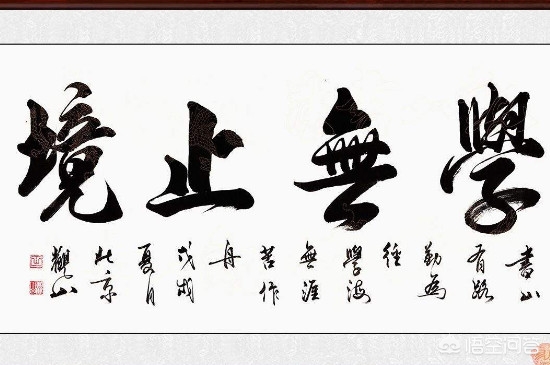 學無止境
書山
有路
勤為
徑
學海
無涯
苦作
舟
戊戌
夏月
北京
山
悟空问答